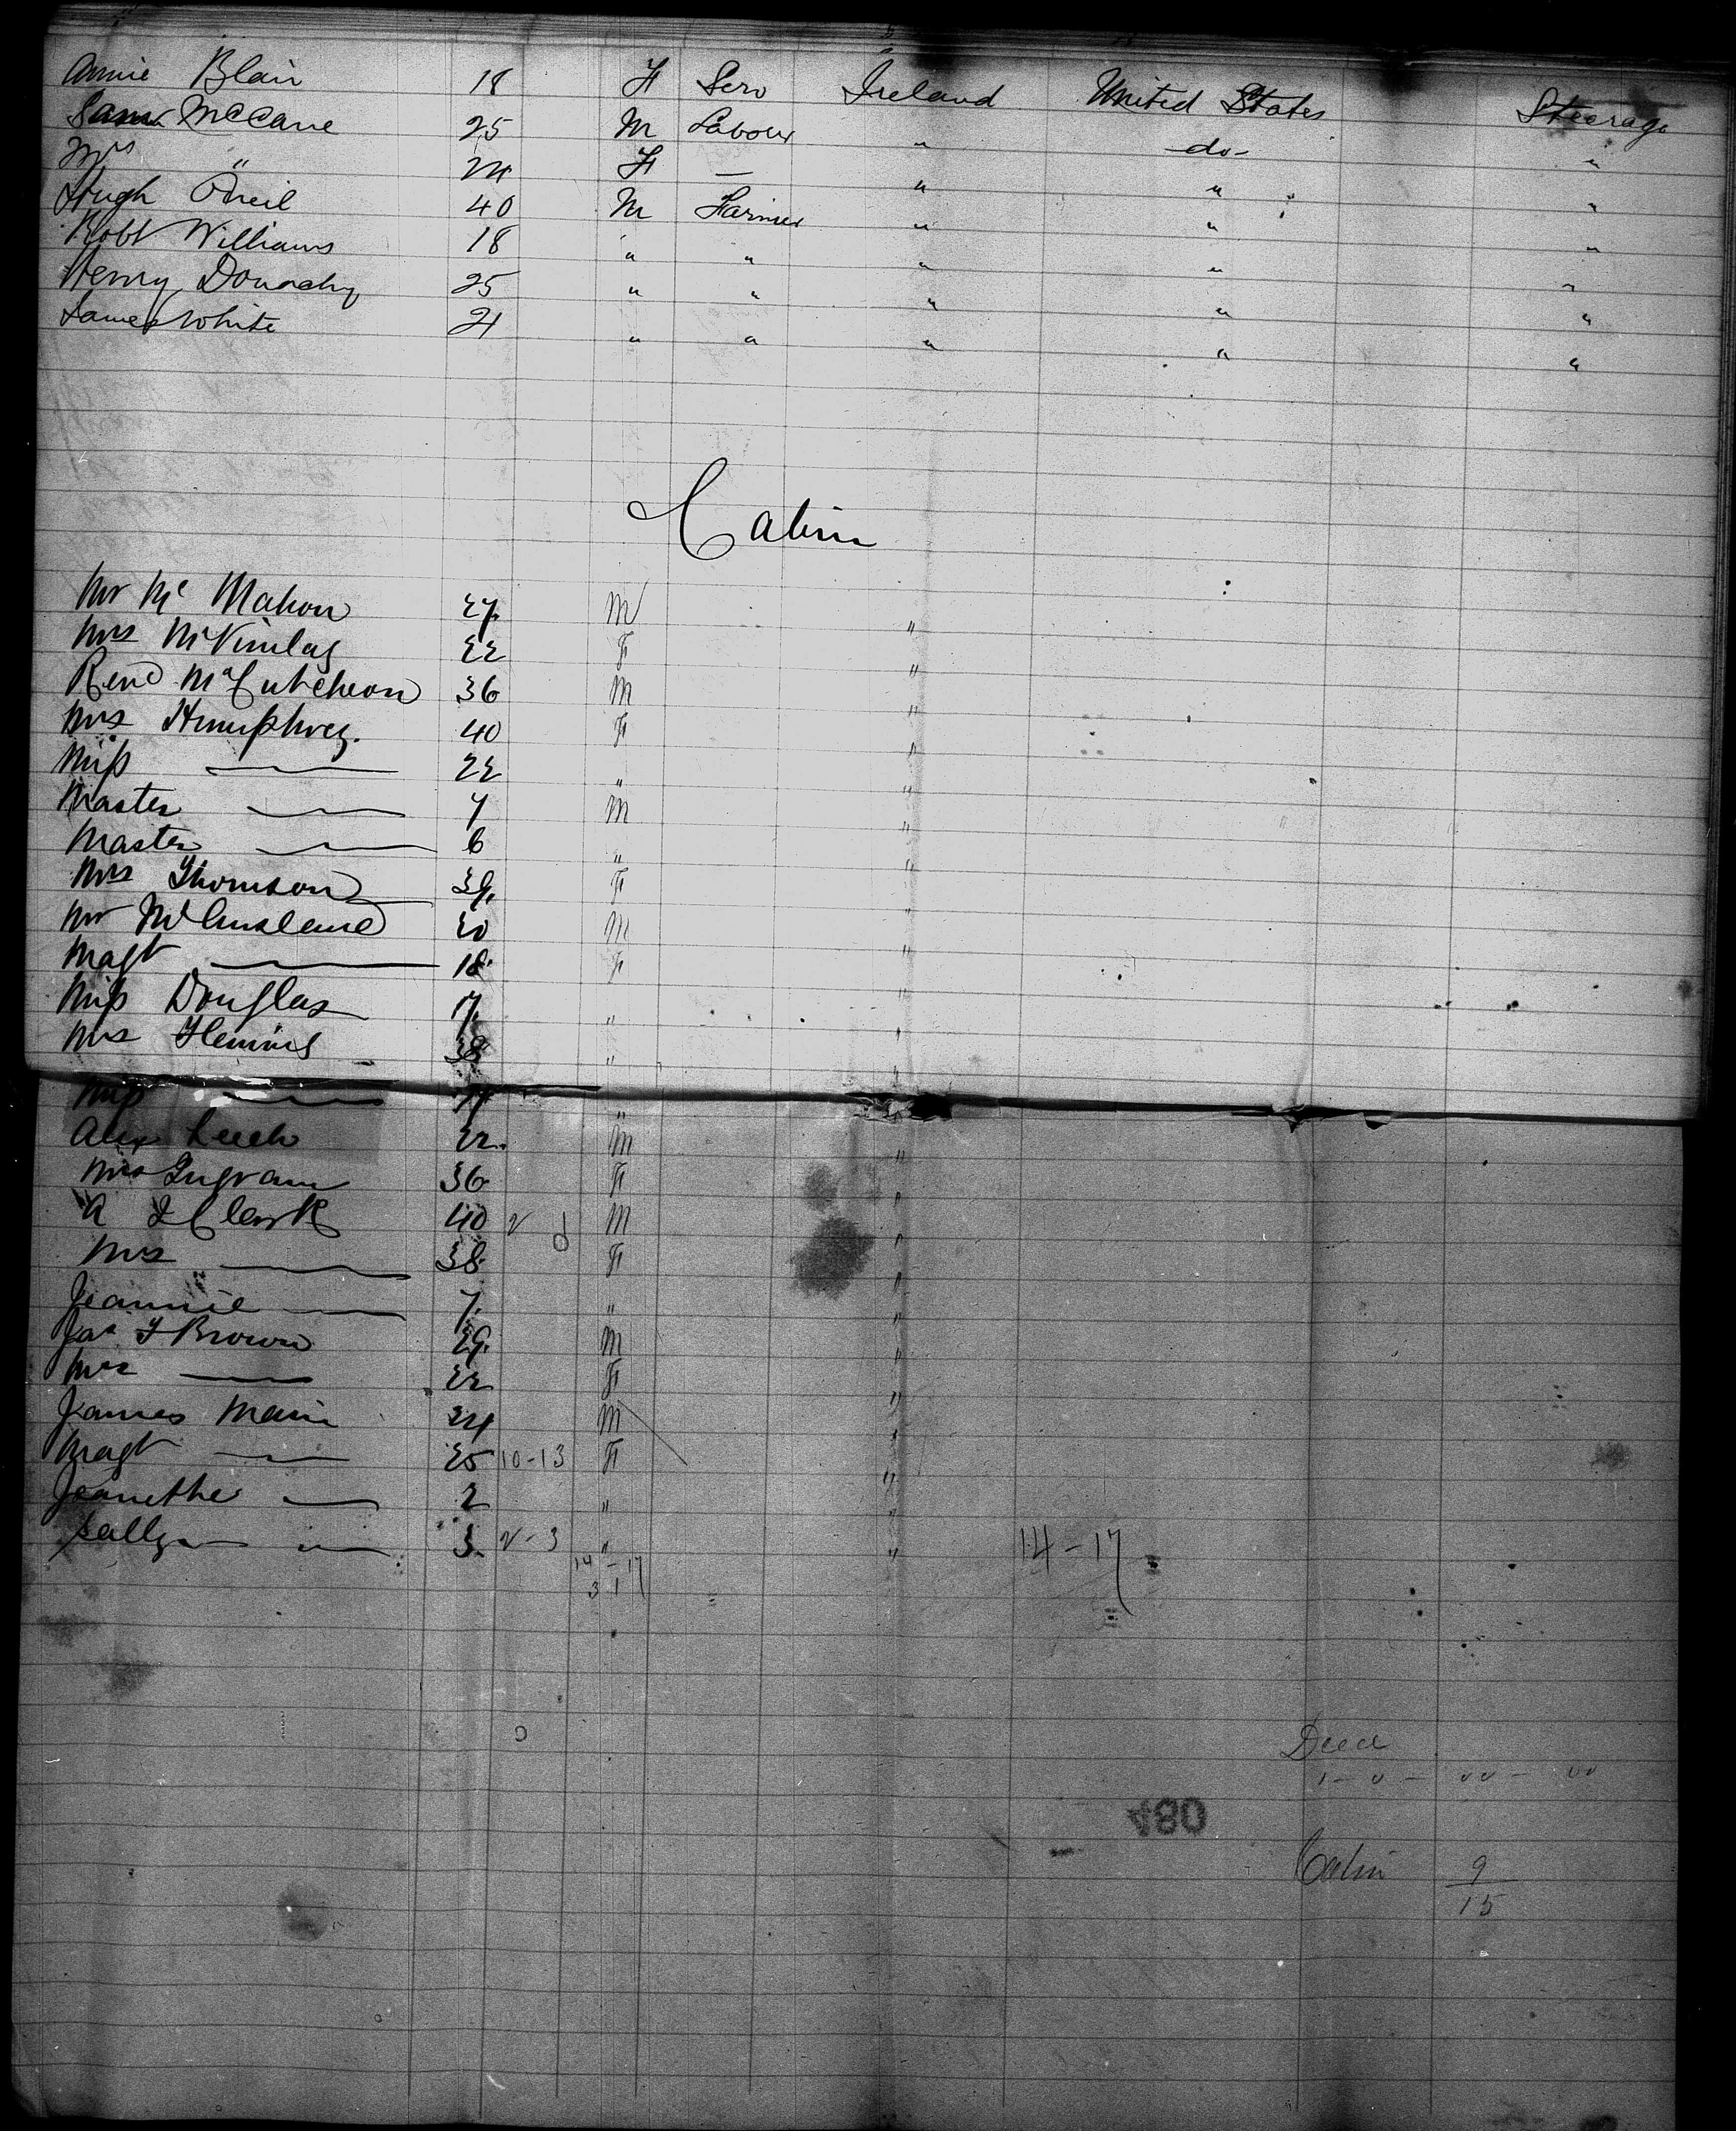 Annie Blair 18 F Serv Ireland United States Steerage
Saml McCane 25 M Labour " -do- "
Mrs " 24 F — " " "
Hugh O'Neil 40 M Farmer " " "
Robt Williams 18 " " " " "
Henry Donachy 25 " " " " "
James White 21 " " " " "
Cabin
Mr Mc Mahon 27. M "
Mrs McKinlay 22 F "
Revd McCutcheon 36 M "
Mrs Humphrey. 40 F "
Miss — 22 " "
Master — 7 M "
Master — 6 " "
Mrs Thomson 39. F "
Mr McAusland 20 M "
Magt — 18 F "
Miss Douglas 17. " "
Mrs Fleming 38 " "
Miss — "
Alex Leech 22. M "
Mrs Ingram 36 F "
A Clark 40 M "
Mrs — 38 F "
Jeannie — 7. " "
Jas F Brown 29. M "
Mrs — 22 F "
James Main 24 M "
Magt — 25 10-13 F "
Jeanethe — 2 " "
Sally — 3 2-3 " "
14-17 14-17
31
Died
1-0-00-00
480
Cabin 9
15